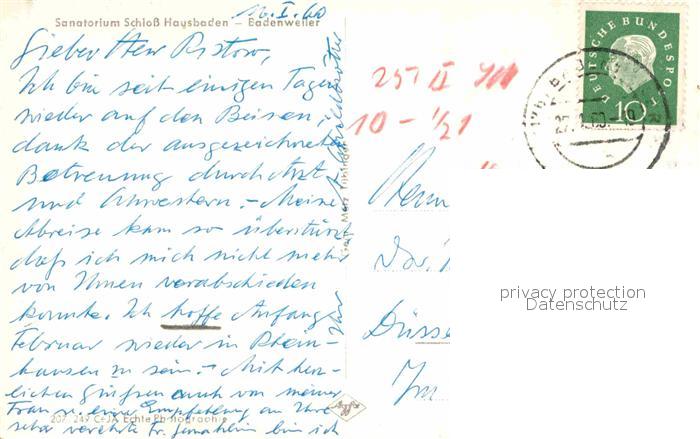 Sanatorium Schloß Hausbaden – Badenweiler
26.I.60
Lieber Herr Ristow,
Ich bin seit einigen Tagen
wieder auf den Beinen,
dank der ausgezeichneten
Betreuung durch Arzt
und Schwestern. – Meine
Abreise kam so überstürzt
daß ich mich nicht mehr
von Ihnen verabschieden
konnte. Ich hoffe Anfang
Februar wieder in Rhein-
hausen zu sein. – Mit herz-
lichen Grüßen auch von meiner
Frau u. eine Empfehlung an Ihre
sehr verehrte Fr. Gemahlin bin ich
Ihr
207 249 Echte Photographie
257 II
10 – 1/21
DEUTSCHE BUNDESPOST
10
Herrn
Düsse
privacy protection
Datenschutz